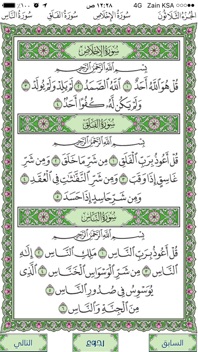 ١٠٠٪ ١٢:٢٨ ص 4G Zain KSA
الجزء الثلاثون سورة الإخلاص سورة الفلق سورة الناس
سورة الإخلاص
بسم الله الرحمن الرحيم
قُلْ هُوَ اللَّهُ أَحَدٌ ١ اللَّهُ الصَّمَدُ ٢ لَمْ يَلِدْ وَلَمْ يُولَدْ ٣
وَلَمْ يَكُن لَّهُ كُفُوًا أَحَدٌ ٤
سورة الفلق
بسم الله الرحمن الرحيم
قُلْ أَعُوذُ بِرَبِّ الْفَلَقِ ١ مِن شَرِّ مَا خَلَقَ ٢ وَمِن شَرِّ
غَاسِقٍ إِذَا وَقَبَ ٣ وَمِن شَرِّ النَّفَّاثَاتِ فِي الْعُقَدِ ٤
وَمِن شَرِّ حَاسِدٍ إِذَا حَسَدَ ٥
سورة الناس
بسم الله الرحمن الرحيم
قُلْ أَعُوذُ بِرَبِّ النَّاسِ ١ مَلِكِ النَّاسِ ٢ إِلَٰهِ
النَّاسِ ٣ مِن شَرِّ الْوَسْوَاسِ الْخَنَّاسِ ٤ الَّذِي
يُوَسْوِسُ فِي صُدُورِ النَّاسِ ٥
مِنَ الْجِنَّةِ وَالنَّاسِ ٦
السابق رجوع التالي